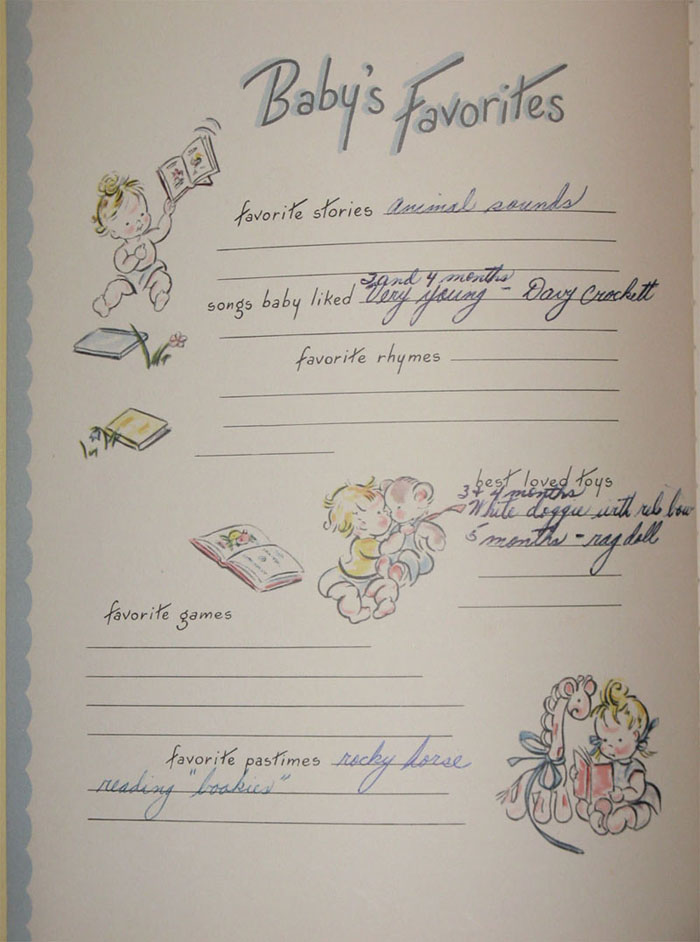 Baby's Favorites
favorite stories Animal sounds
3 and 4 months
songs baby liked Very young - Davy Crockett
favorite rhymes
best loved toys
3 + 4 months
White doggie with red bow
5 months - rag doll
favorite games
favorite pastimes rocky horse
reading "bookies"